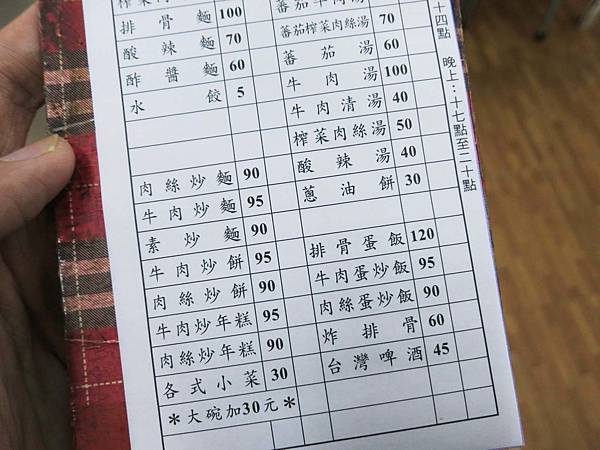 榨菜肉絲麵
排骨麵 100
酸辣麵 70
酢醬麵 60
水餃 5
肉絲炒麵 90
牛肉炒麵 95
素炒麵 90
牛肉炒餅 95
肉絲炒餅 90
牛肉炒年糕 95
肉絲炒年糕 90
各式小菜 30
＊大碗加30元＊
蕃茄牛肉湯
蕃茄榨菜肉絲湯 70
蕃茄湯 60
牛肉湯 100
牛肉清湯 40
榨菜肉絲湯 50
酸辣湯 40
蔥油餅 30
排骨蛋飯 120
牛肉蛋炒飯 95
肉絲蛋炒飯 90
炸排骨 60
台灣啤酒 45
十四點 晚上：十七點至二十點